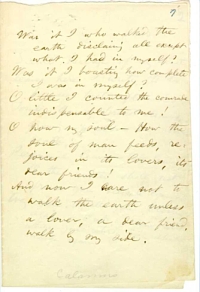 7
Was it I who walked the
earth disclaiming all except
what I had in myself?
Was it I boasting how complete
I was in myself?
O little I counted the comrade
indispensable to me!
O how my soul — How the
soul of man feeds, re-
joices in its lovers, its
dear friends!
And now I care not to
walk the earth unless
a lover, a dear friend,
walk by my side.